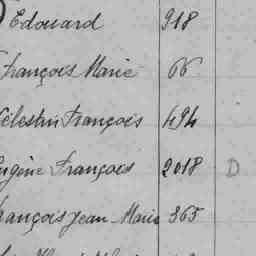 Edouard 918
François Marie 66
Célestin François 494
Eugène François 2018 D
François Jean-Marie 365